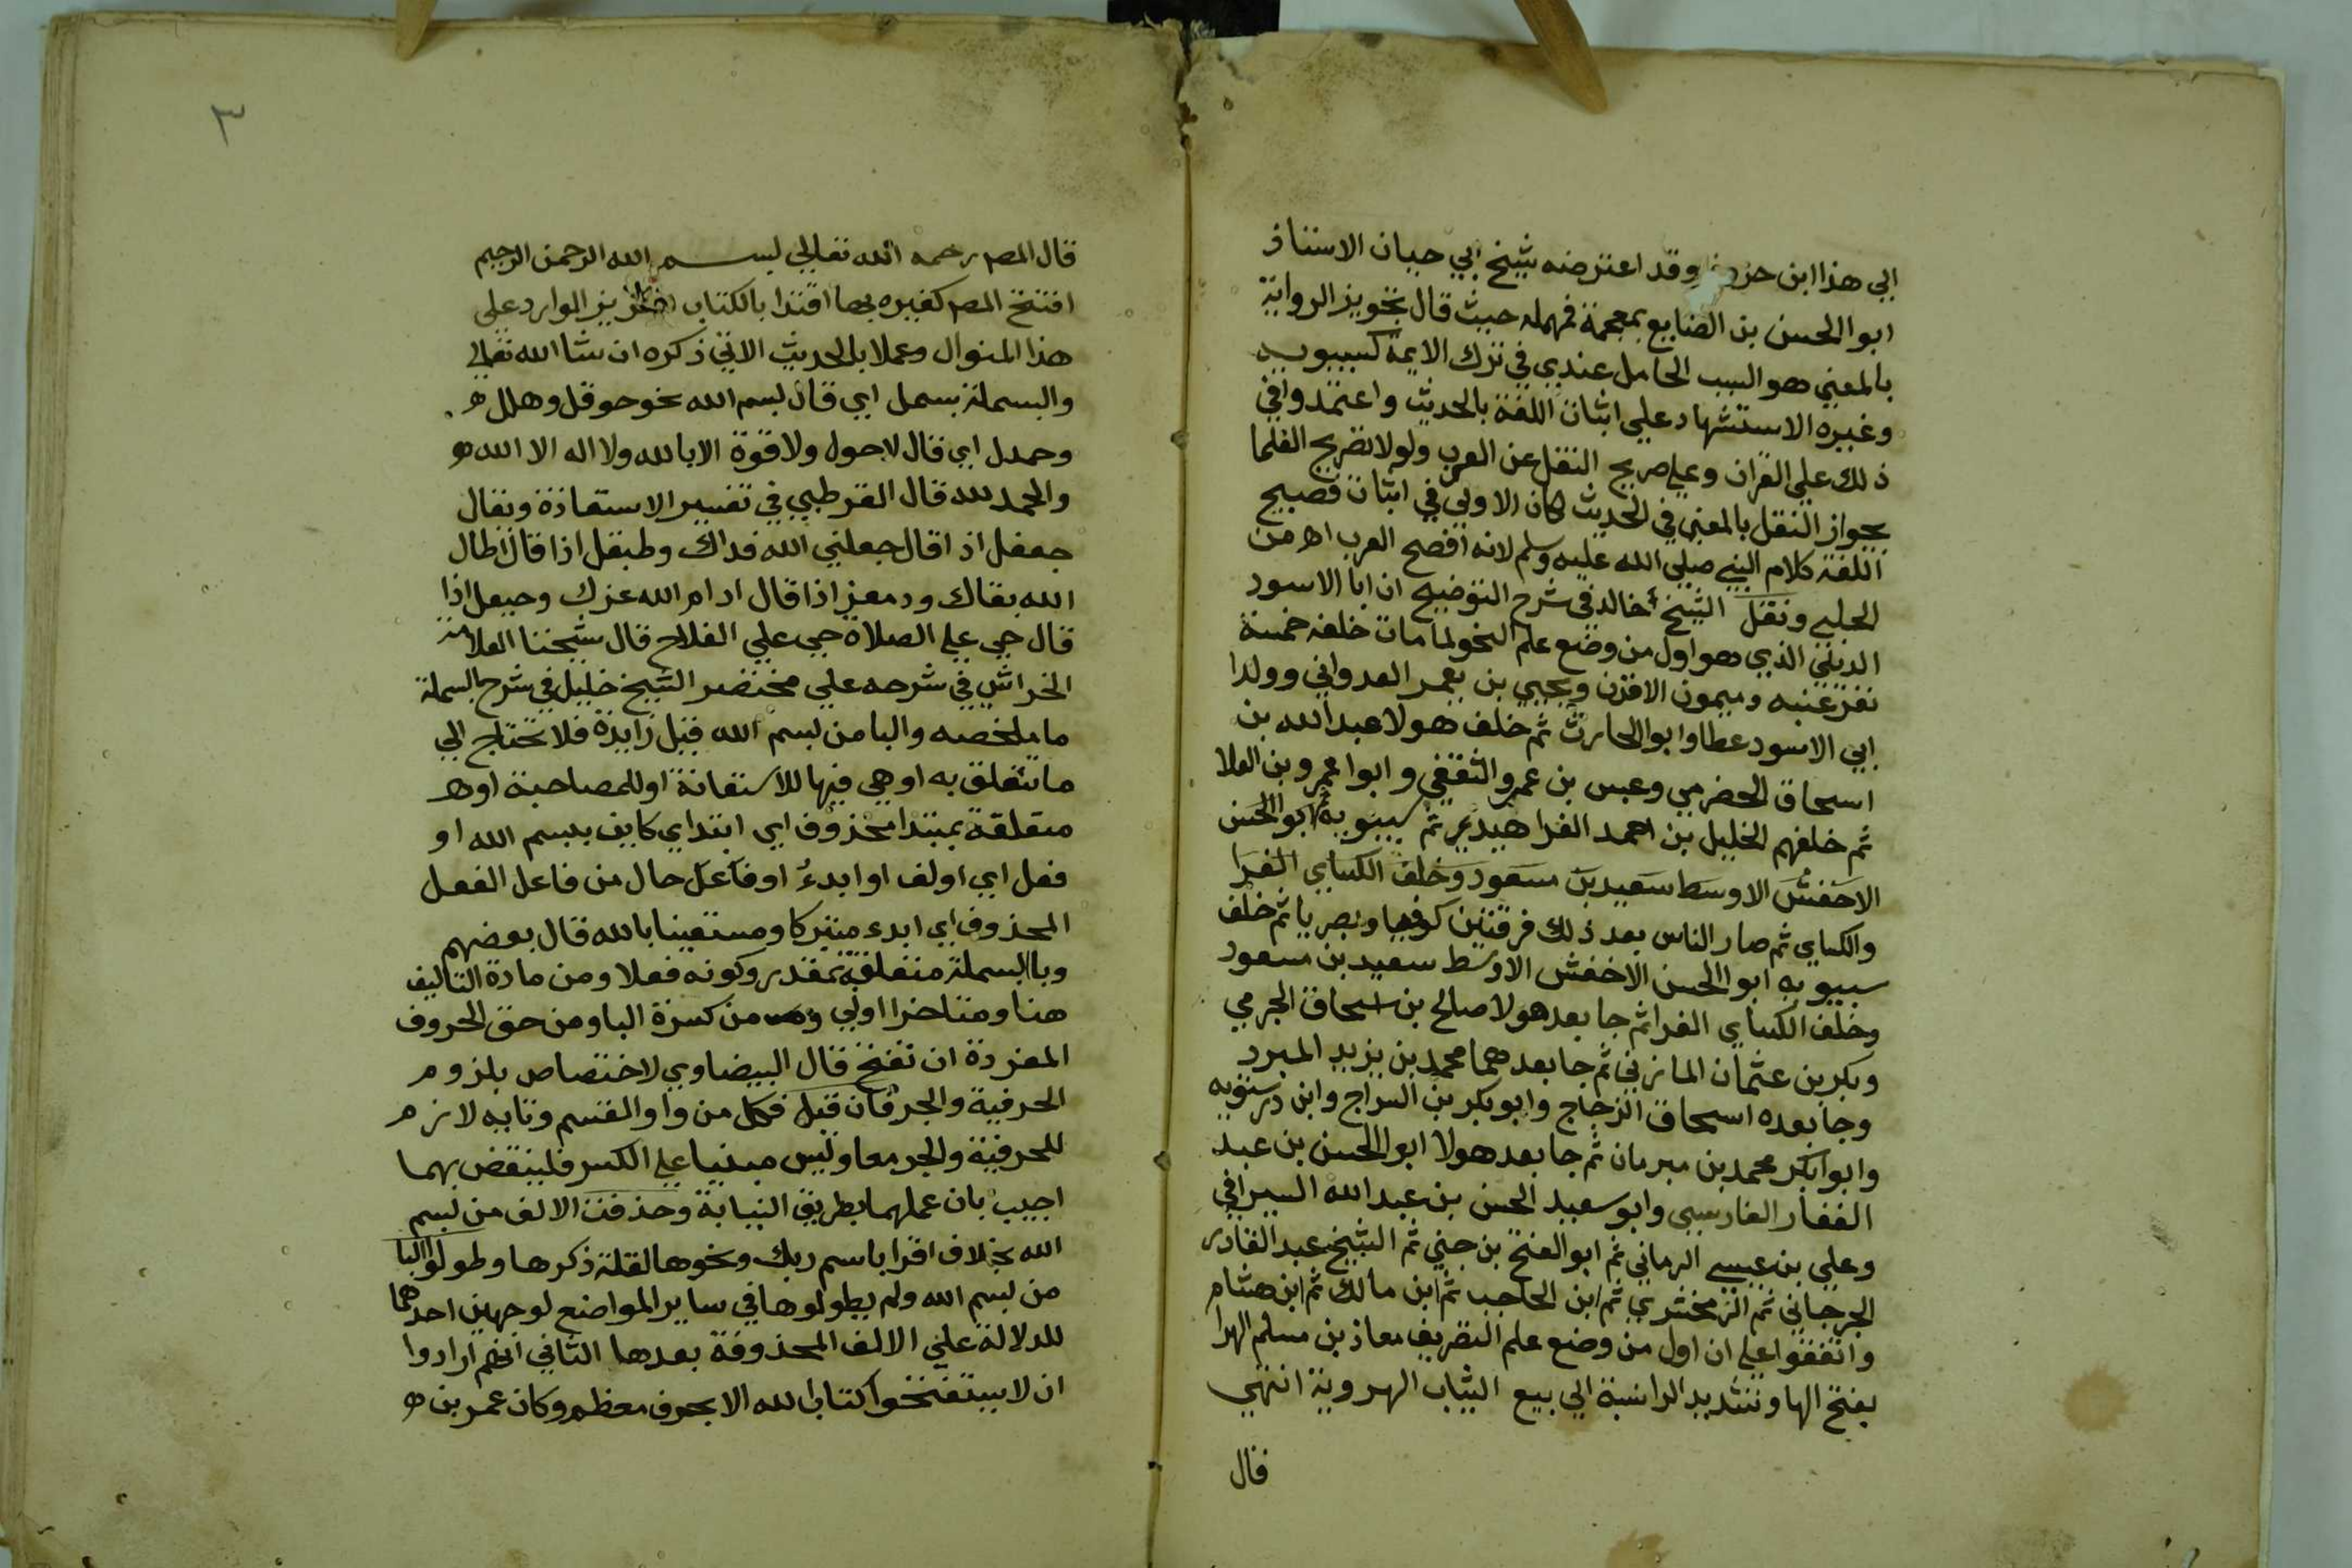 الي هذا ابن خروف وقد اعترضه شيخ ابي حيان الاستاذ
ابوا الحسن بن الضايع بمعجمة فمهملة حيث قال تجويز الرواية
بالمعني هو السبب الحامل عندي في ترك الايمة كسيبويه
وغيره الاستشهاد علي اثبات اللغة بالحديث واعتمدوا في
ذلك علي القران وعلي صريح النقل عن العرب ولولا تصريح العلما
بجواز النقل بالمعني في الحديث لكان الاولي في اثبات فصيح
اللغة كلام النبي صلي الله عليه وسلم لانه افصح العرب اه من
الحلبي ونقل الشيخ خالد في شرح التوضيح ان ابا الاسود
الديلي الذي هو اول من وضع علم النحو لما مات خلفه خمسة
نفر عنبه وميمون الاقرن ويحيي بن يعمر العدواني وولدا
ابي الاسود عطا وابو الحارث ثم خلف هولا عبد الله بن
اسحاق الحضرمي وعيسي بن عمرو الثقفي وابوا عمرو بن العلا
ثم خلفهم الخليل بن احمد الفراهيدي ثم سيبويه ثم ابو الحسن
الاخفش الاوسط سعيد بن مسعود وخلف الكساي الفرا
والكساي ثم صار الناس بعد ذلك فرقتين كوفيا وبصريا ثم خلف
سيبويه ابوا الحسن الاخفش الاوسط سعيد بن مسعود
وخلف الكساي الفرا ثم جا بعد هولا صالح بن اسحاق الجرمي
وبكر بن عثمان المازني ثم جا بعدهما محمد بن يزيد المبرد
وجا بعده اسحاق الزجاج وابو بكر بن السراج وابن درستويه
وابوا بكر محمد بن مبرمان ثم جا بعد هولا ابوا الحسن بن عبد
الغفار الفارسي وابو سعيد الحسن بن عبد الله السيرافي
وعلي بن عيسي الرماني ثم ابو الفتح بن جني ثم الشيخ عبد القادر
الجرجاني ثم الزمخشري ثم ابن الحاجب ثم ابن مالك ثم ابن هشام
واتفقوا علي ان اول من وضع علم التصريف معاذ بن مسلم الهرا
بفتح الها وتشديد الرا نسبة الي بيع الثياب الهروية انتهي
قال
٣
قال المص رحمه الله تعالي بسم الله الرحمن الرحيم
افتتح المص كغيره بها اقتدا بالكتاب العزيز الوارد علي
هذا المنوال وعملا بالحديث الاتي ذكره ان شا الله تعالي
والبسملة بسمل اي قال بسم الله نحو حوقل وهلل
وحمدل اي قال لا حول ولا قوة الا بالله ولا اله الا الله
والحمد لله قال القرطبي في تفسير الاستعاذة ونقال
جعفل اذا قال جعلني الله فداك وطبقل اذا قال اطال
الله بقاك ودمعز اذا قال ادام الله عزك وحيعل اذا
قال حي علي الصلاة حي علي الفلاح قال شيخنا العلامة
الخراشي في شرحه علي مختصر الشيخ خليل في شرح البسملة
ما ملخصه والبا من بسم الله قيل زايدة فلا تحتاج الي
ما تتعلق به او هي فيها للاستعانة او للمصاحبة او
متعلقة بمبتدا محذوف اي ابتداي كاين ببسم الله او
فعل اي اولف او ابدء او فاعل حال من فاعل الفعل
المحذوف اي ابدء متبركا ومستعينا بالله قال بعضهم
وبا البسملة متعلقة بمقدر وكونه فعلا ومن مادة التاليف
هنا ومتاخرا اولي من كسرة البا ومن حق الحروف
المفردة ان تفتح قال البيضاوي لاختصاص بلزوم
الحرفية والجر فان قيل فكل من واو القسم وتايه لازم
للحرفية والجر معا وليس مبنيا علي الكسر فلينقض بهما
اجيب بان عملهما بطريق النيابة وحذفت الالف من بسم
الله بخلاف اقرا باسم ربك ونحوها لقلة ذكرها وطولوا البا
من بسم الله ولم يطولوها في ساير المواضع لوجهين احدهما
للدلالة علي الالف المحذوفة بعدها الثاني انهم ارادوا
ان لا يستفتحوا كتاب الله الا بحرف معظم وكان عمر بن